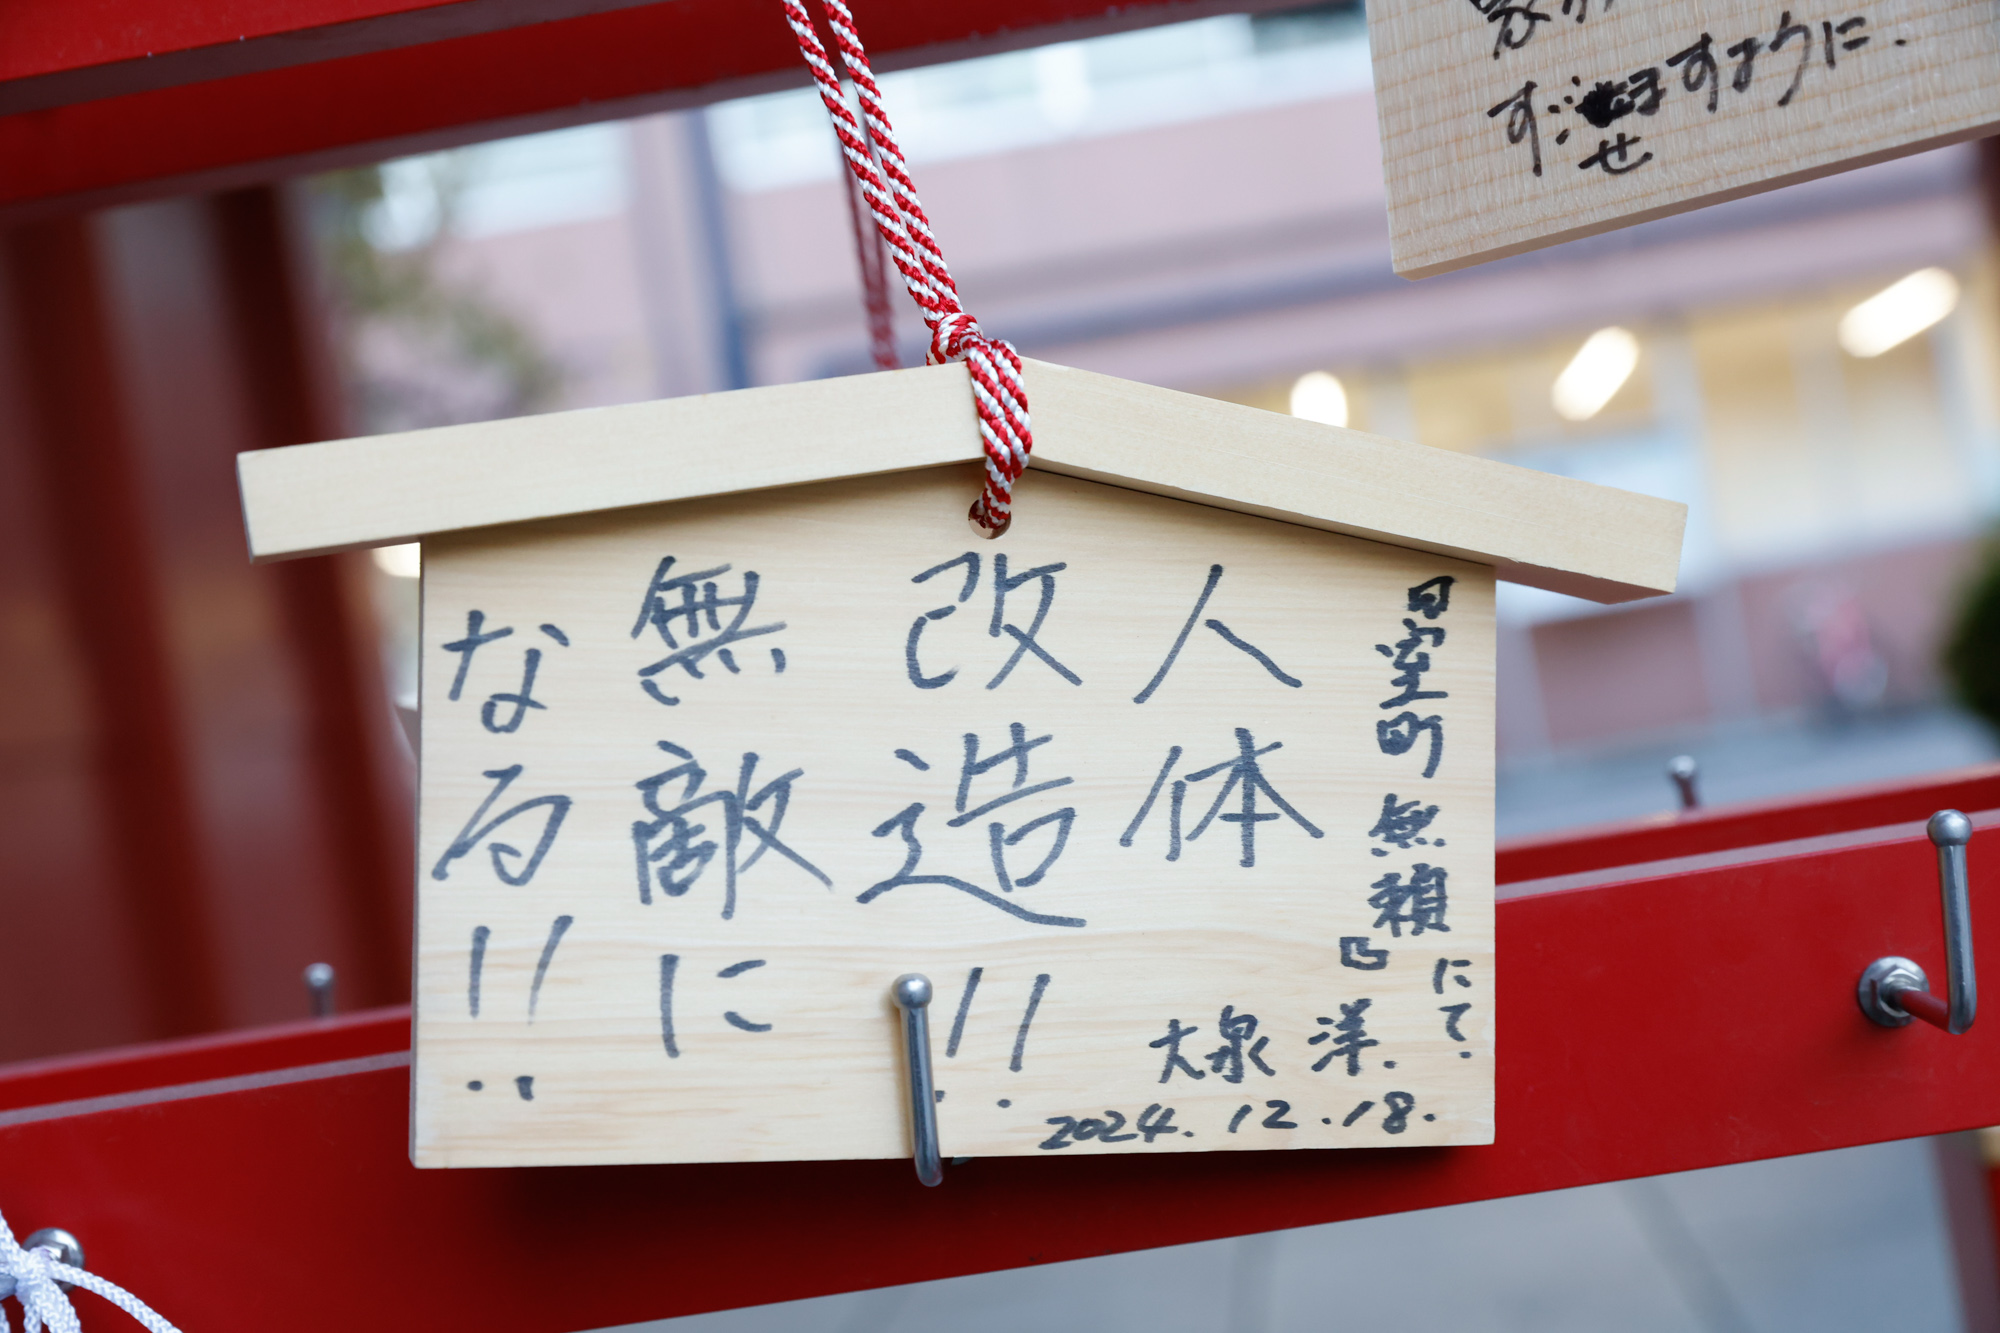 日室町無頼凸にて.
人体
改造!!
無敵に
なる!!
大泉洋.
2024.12.18.
すように.
せ